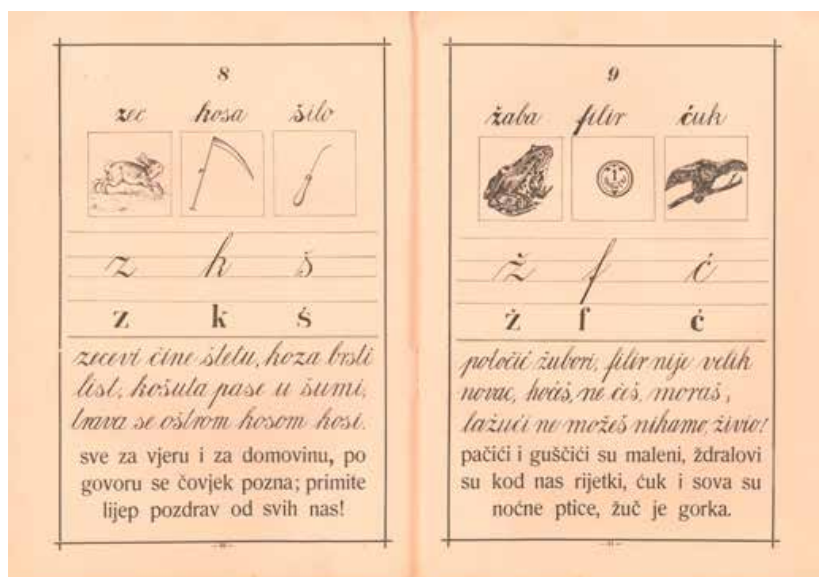 8
zec kosa šilo
z k š
z k š
zecevi čine štetu, koza brsti
list, košuta pase u šumi,
trava se oštrom kosom kosi.
sve za vjeru i za domovinu, po
govoru se čovjek pozna; primite
lijep pozdrav od svih nas!
9
žaba filir ćuk
1
ž f ć
ž f ć
potočić žubori, filir nije velik
novac, hoćeš, ne ćeš, moraš,
lažući ne možeš nikamo, živio!
pačići i guščići su maleni, ždralovi
su kod nas rijetki, ćuk i sova su
noćne ptice, žuč je gorka.